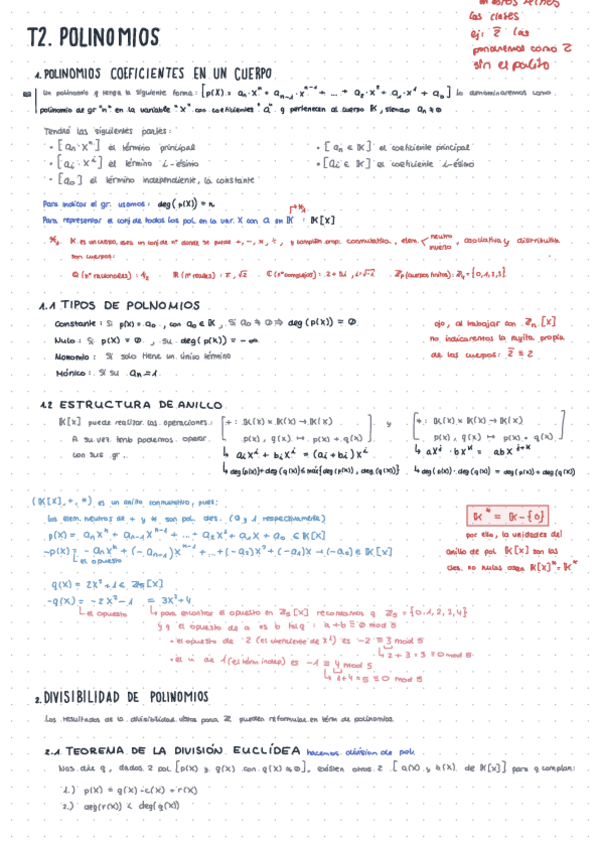 en estos
las clases
ej: 2̄ las
pondremos como 2
sin el palito
T2. POLINOMIOS
1. POLINOMIOS COEFICIENTES EN UN CUERPO
Un polinomio q tenga la siguiente forma: [p(x) = aₙ·xⁿ + aₙ₋₁·xⁿ⁻¹ + ... + a₂·x² + a₁·x¹ + a₀] lo denominaremos como
polinomio de gr "n" en la variable "x" con coeficientes "a" q pertenecen al cuerpo K, siendo aₙ ≠ 0
Tendrá las siguientes partes:
· [aₙ·xⁿ] el término principal · [aₙ ∈ K] el coeficiente principal
· [aᵢ·xⁱ] el término i-ésimo · [aᵢ ∈ K] el coeficiente i-ésimo
· [a₀] el término independiente, la constante
Para indicar el gr. usamos: deg(p(x)) = n
Para representar el conj de todos los pol. en la var. x con a en K: K[x]
K es un cuerpo, es un conj de nº donde se puede +, -, ×, ÷, y cumplen prop. conmutativa, elem. neutro inverso, asociativa y distributiva
son cuerpos:
Q (nº racionales): 1/2 · R (nº reales): π, √2 · C (nº complejos): 2+3i, i=√-1 · Zₚ (cuerpos finitos):
1.1 TIPOS DE POLNOMIOS
Constante: si p(x) = a₀, con a₀ ∈ K, si a₀ ≠ 0 ⇒ deg(p(x)) = 0
Nulo: si p(x) = 0, su deg(p(x)) = -∞
Monomio: si solo tiene un único término
Mónico: si su aₙ = 1
ojo, al trabajar con Zₙ[x]
no indicaremos la rayita propia
de las cuerpos: 2̄ = 2
1.2 ESTRUCTURA DE ANILLO
K[x] puede realizar las operaciones: [+: K(x) × K(x) → K(x) y [*: K(x) × K(x) → K(x)
A su vez tenb podemos operar p(x), q(x) ↦ p(x) + q(x)] p(x), q(x) ↦ p(x) · q(x)]
con sus gr. ↳ aᵢxⁱ + bᵢxⁱ = (aᵢ + bᵢ)xⁱ ↳ axⁱ · bxᵏ = abxⁱ⁺ᵏ
↳ deg(p(x)+deg(q(x)) ≤ máx{deg(p(x)), deg(q(x))} ↳ deg(p(x)·deg(q(x)) = deg(p(x)) + deg(q(x))
(K[x], +, *) es un anillo conmutativo, pues:
los elem. neutros de + y * son pol. (0 y 1 respectivamente)
p(x) = aₙxⁿ + aₙ₋₁xⁿ⁻¹ + ... + a₂x² + a₁x + a₀ ∈ K[x]
-p(x) = -aₙxⁿ + (-aₙ₋₁)xⁿ⁻¹ + ... + (-a₂)x² + (-a₁)x + (-a₀) ∈ K[x]
↳ el opuesto
K* = K - {0}
por ello, la unidades del
anillo de pol. K[x] son las
no nulas K[x]* = K*
q(x) = 2x² + 1 ∈ Z₅[x]
-q(x) = -2x² - 1 = 3x² + 4
↳ el opuesto ↳ para encontrar el opuesto en Z₅[x] recordamos q Z₅ = {0, 1, 2, 3, 4}
y q el opuesto de a es b tal q: a + b ≡ 0 mod 5
· el opuesto de 2 (el coeficiente de x²) es -2 ≡ 3 mod 5
↳ 2 + 3 = 5 ≡ 0 mod 5
· el " de 1 (el térm indep) es -1 ≡ 4 mod 5
↳ 1+4 = 5 ≡ 0 mod 5
2. DIVISIBILIDAD DE POLINOMIOS
Los resultados de la divisibilidad vistos para Z pueden reformular en térm de polinomios
2.1 TEOREMA DE LA DIVISIÓN EUCLÍDEA hacemos division de pol.
Nos dice q, dados 2 pol [p(x) y q(x) con q(x) ≠ 0], existen otros 2 de K[x]] para q cumplan:
1.) p(x) = q(x)·c(x) + r(x)
2.) deg(r(x)) < deg(q(x))